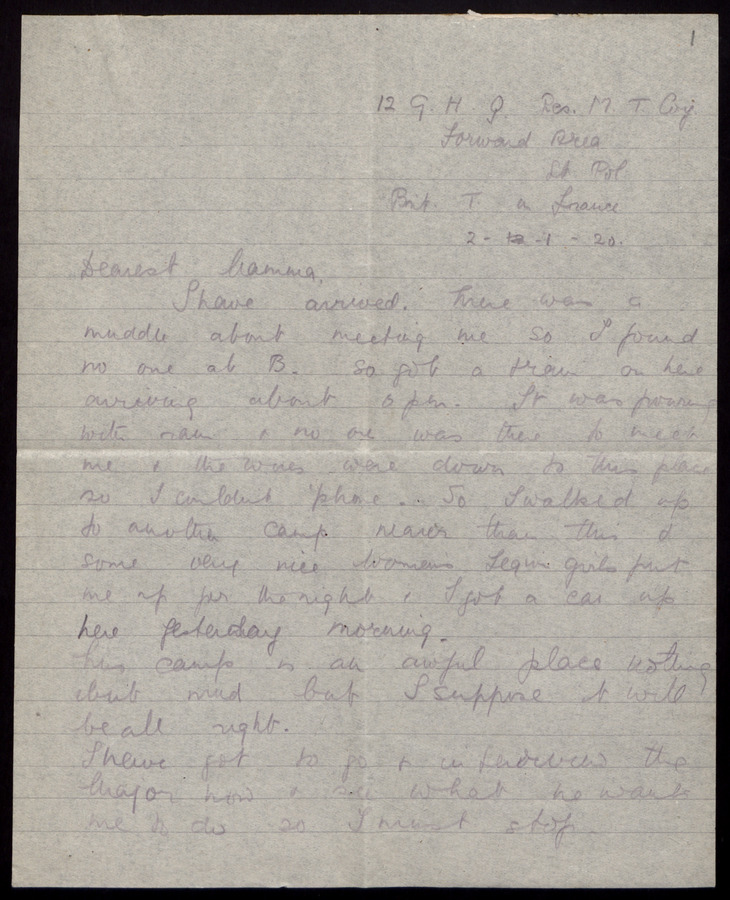 1
12 G. H. Q. Res. M. T. Coy
Forward Area
St Pol
Brit. T. in France
2 - 12 - 1 - 20.
Dearest Mamma,
I have arrived. There was a
muddle about meeting me so I found
no one at B. so got a train on here
arriving about 8 pm. It was pouring
with rain & no one was there to meet
me & the wires were down to this place
so I couldn't 'phone... So I walked up
to another camp nearer than this &
some very nice Womens Legion girls put
me up for the night & I got a car up
here yesterday morning.
This camp is an awful place nothing
but mud but I suppose it will
be all right.
I have got to go & interview the
Major now & see what he wants
me to do so I must stop.